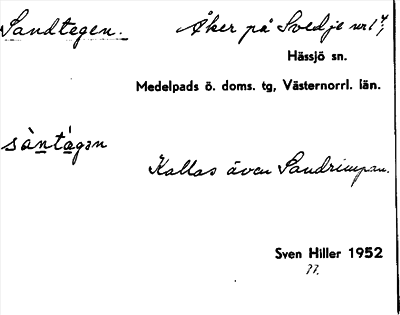 Sandtegen. Åker på Svedje nr 1 4,
Hässjö sn.
Medelpads ö. doms. tg, Västernorrl. län.
sàntágən
Kallas även Sandrimpan.
Sven Hiller 1952